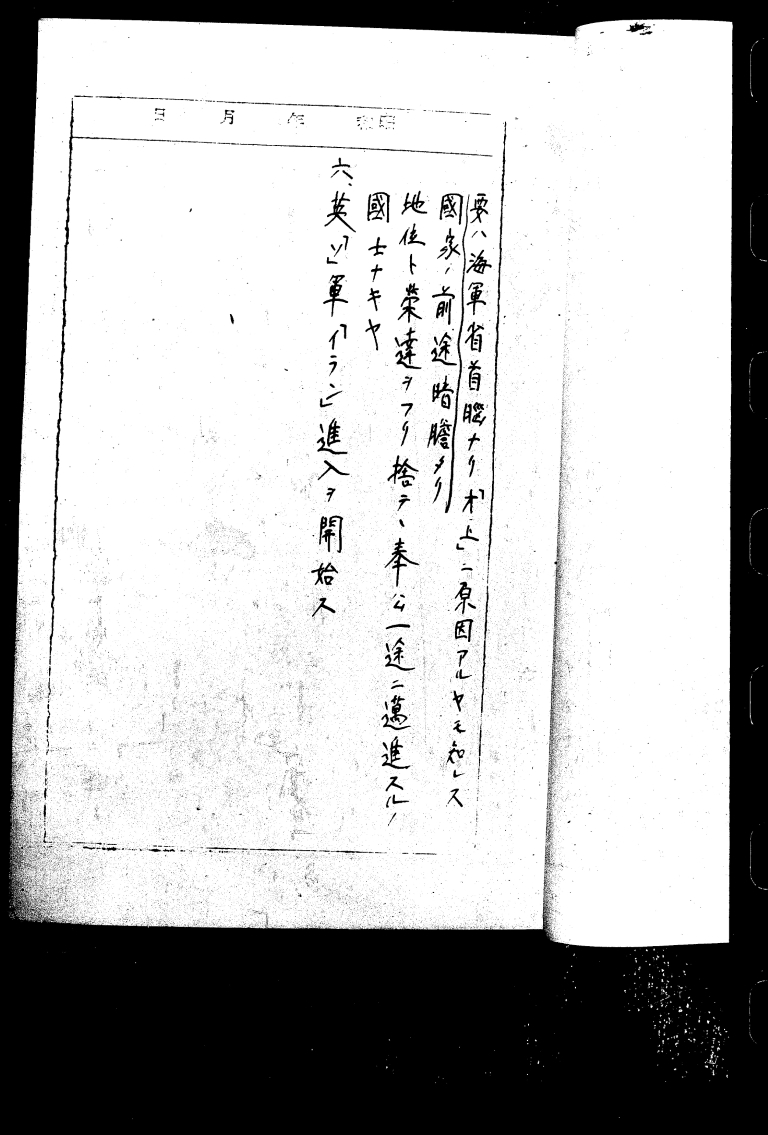 日 月 年 昭和
要ハ海軍省首脳ナリ「オ上」ニ原因アルヤモ知レス
國家ノ前途暗膽タリ
地位ト榮達ヲフリ捨テヽ奉公一途ニ邁進スルノ
國士ナキヤ
六、英「ソ」軍「イラン」進入ヲ開始ス